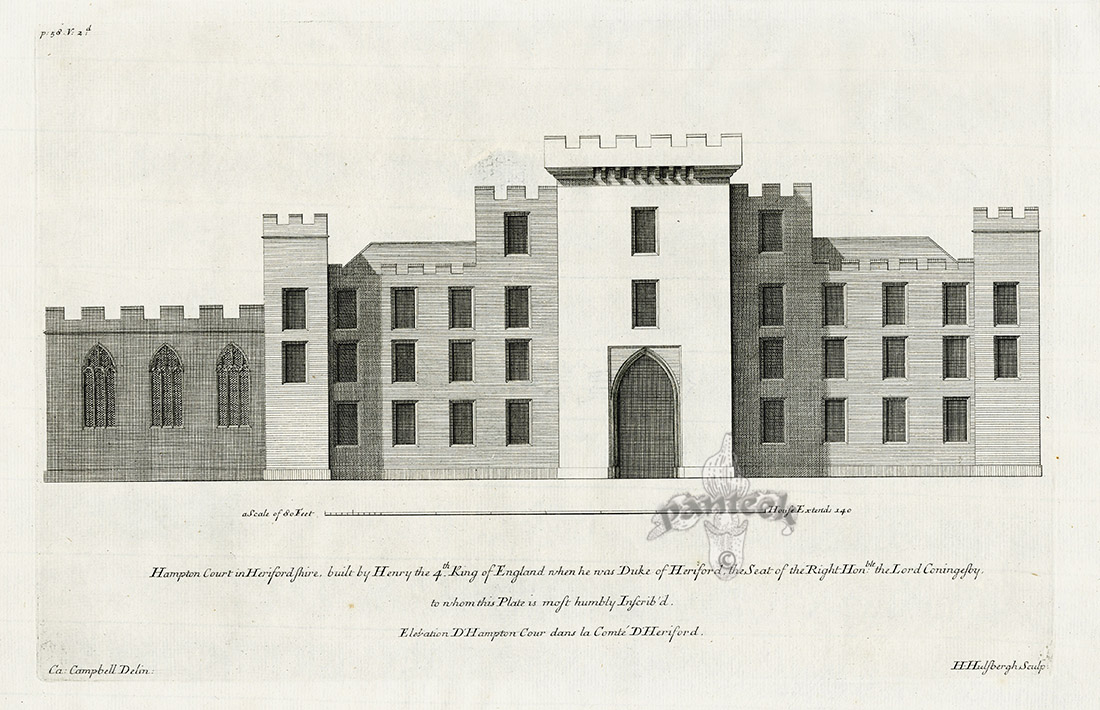 p: 58. V: 2.d
a Scale of 80 Feet
House Extends 140
Hampton Court in Herifordshire, built by Henry the 4.th King of England when he was Duke of Heriford, the Seat of the Right Hon.ble the Lord Coningesby,
to whom this Plate is most humbly Inscrib'd.
Elevation D'Hampton Cour dans la Comté D'Heriford.
Ca: Campbell Delin:
H. Hulsbergh Sculp
panteek
©